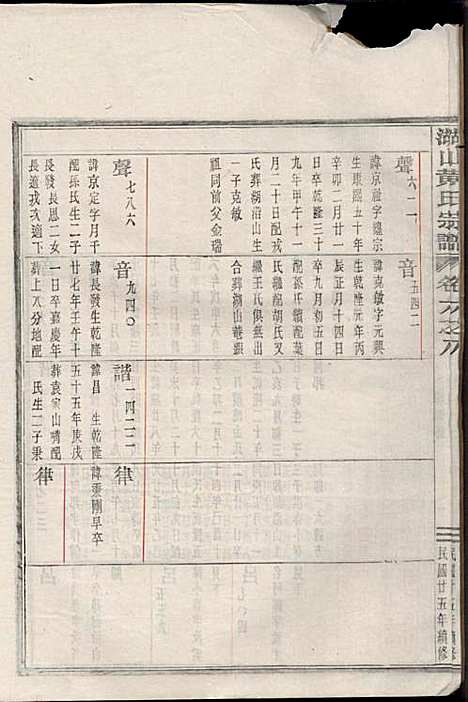 湖山黄氏宗譜
民國廿五年續修
聲
六一一
諱京社字繼宗
生康熙五十年
辛卯二月廿一
日卒乾隆三十
九年甲午十一
月二十日配戎
氏葬湖沿山生
一子克敏
祖同前父金瑞
音
五四二
諱克敏字元興
生乾隆元年丙
辰正月十四日
卒九月初五日
配孫氏續配葉
氏繼配胡氏又
繼王氏俱無出
合葬湖山菴張
聲
七八六
諱京定字月千
配孫氏生二子
長發長恩二女
長適戎次適下
音
九四〇
諱長發生乾隆
廿七年壬午十
一日卒嘉慶年
葬上八分地配
諧
一四二二
諱昌 生乾隆
五十五年庚戌
葬袁家山嘴配
氏生二子秉
律
諱秉剛早卒
律